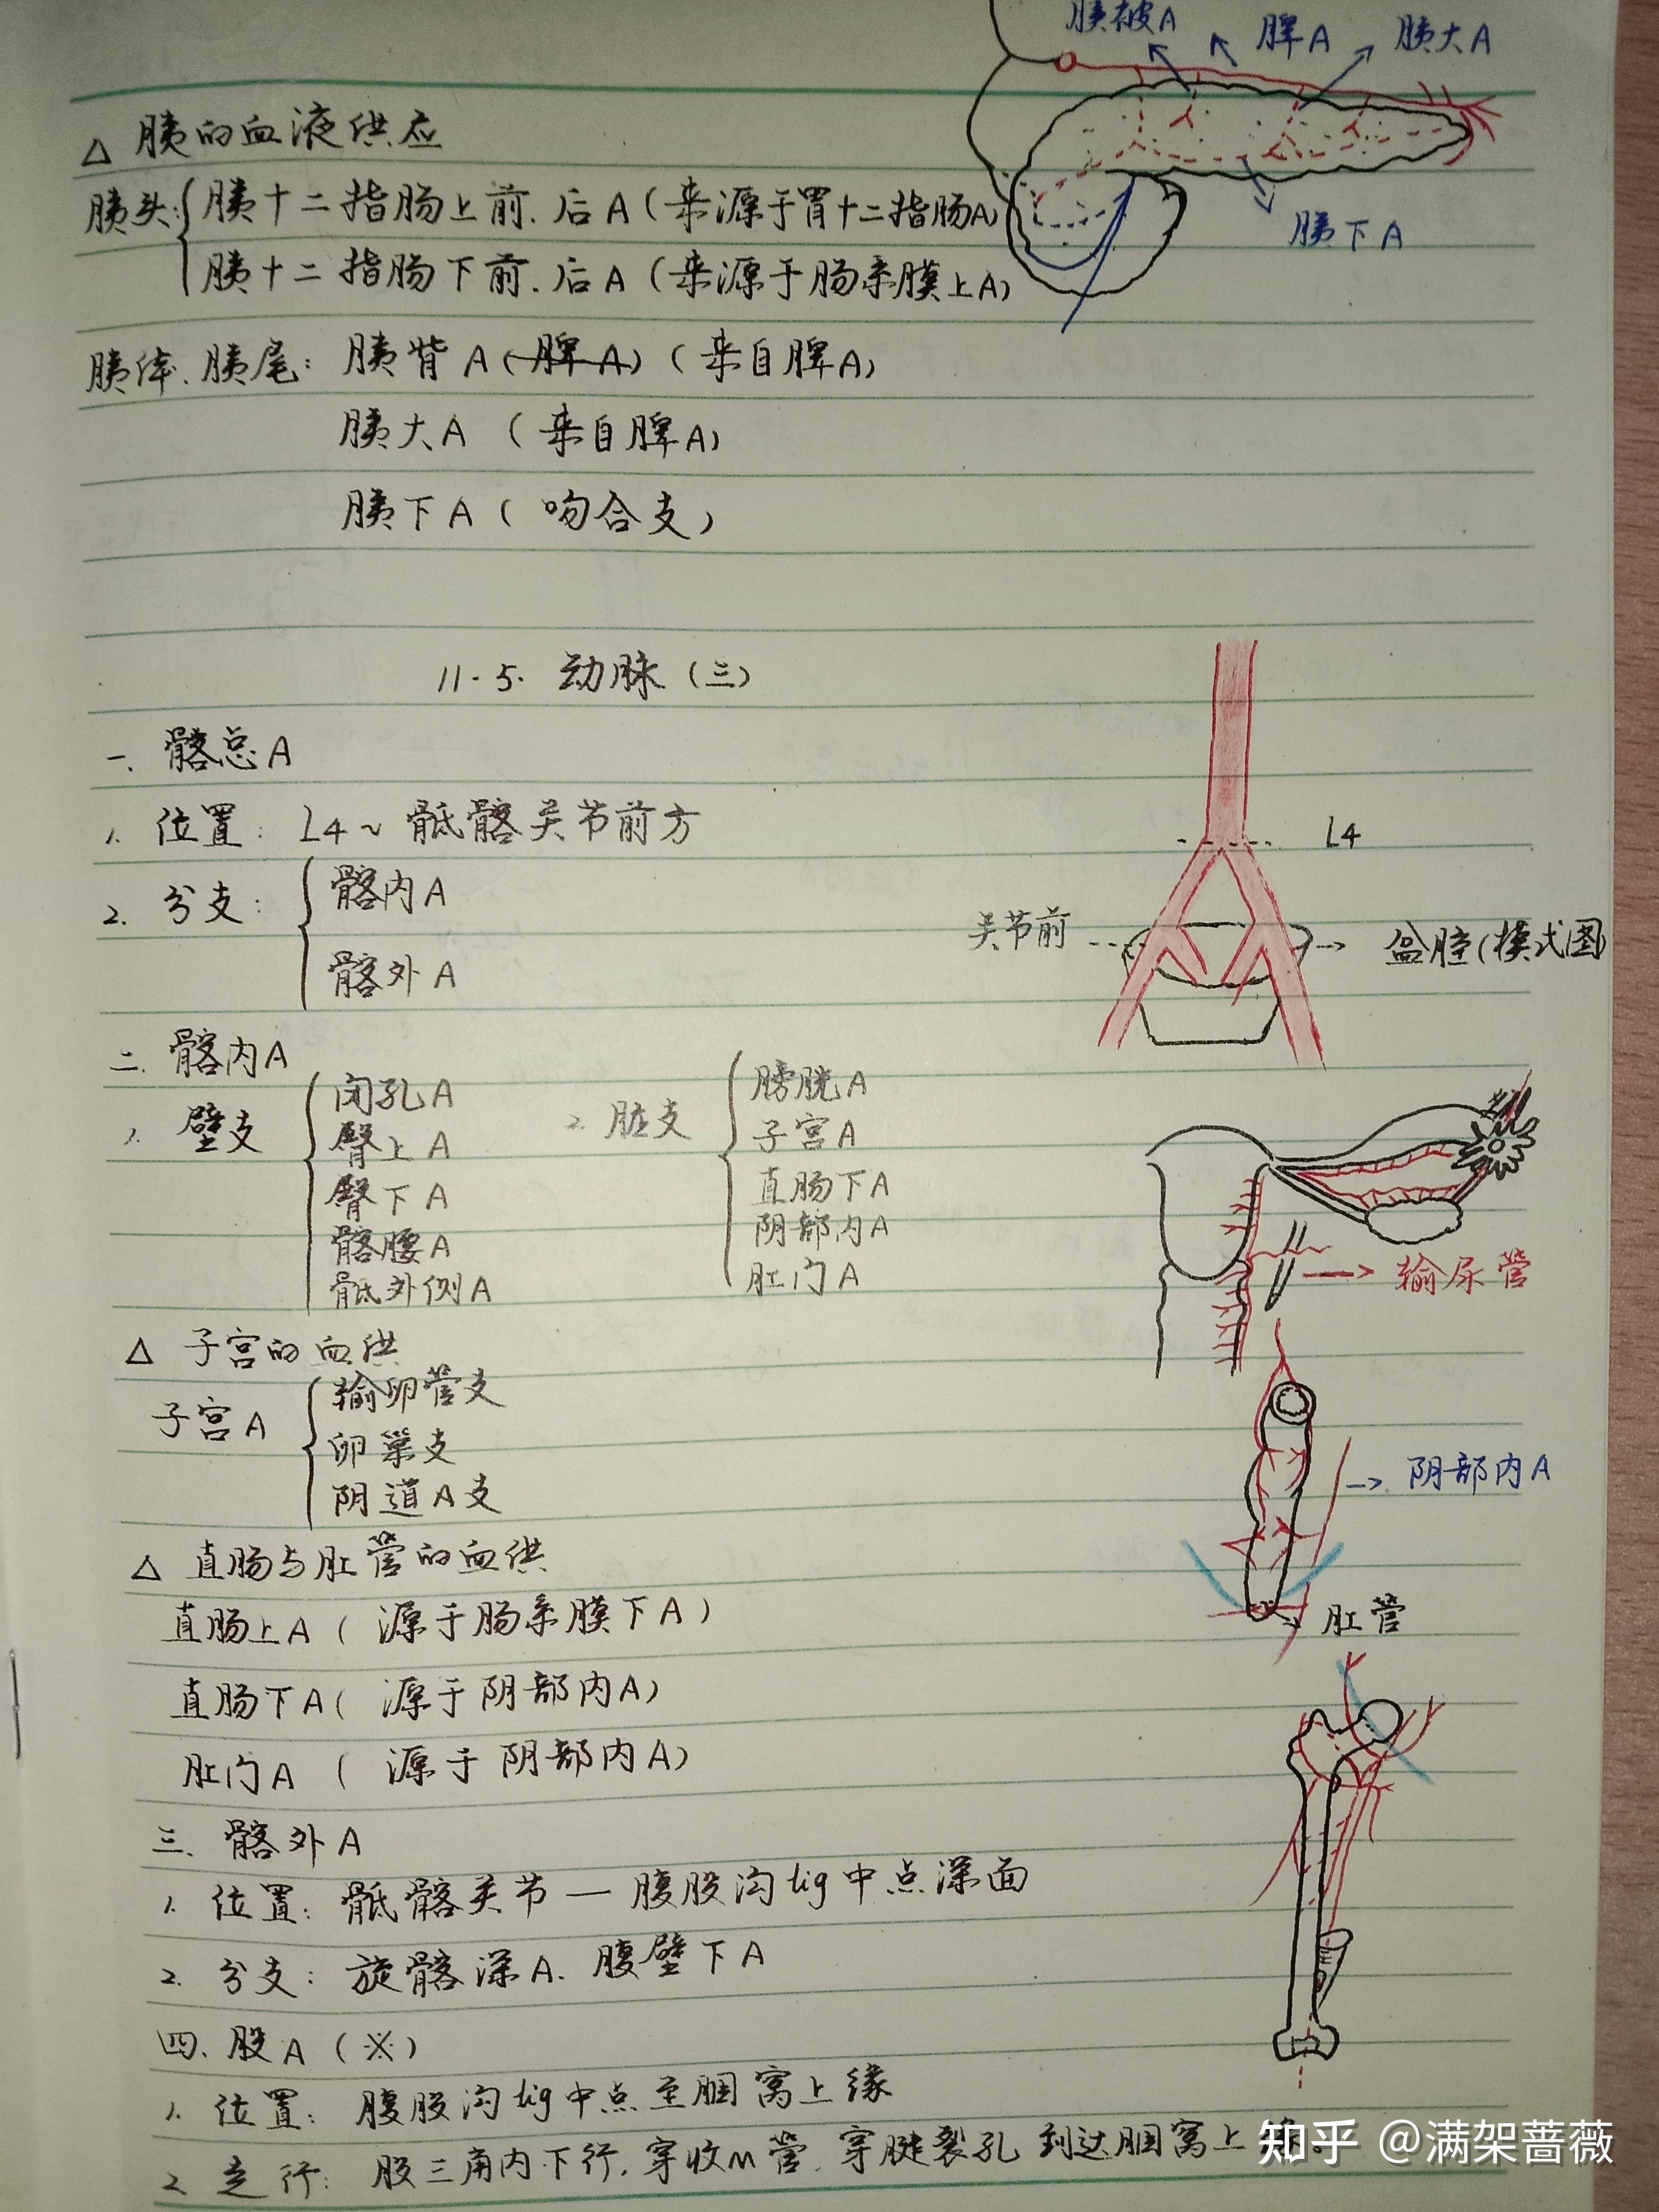 胰被A 脾A 胰大A
△ 胰的血液供应
胰头: 胰十二指肠上前.后A(来源于胃十二指肠A)
胰十二指肠下前.后A(来源于肠系膜上A)
胰下A
胰体.胰尾: 胰背A(脾A)(来自脾A)
胰大A (来自脾A)
胰下A (吻合支)
11.5. 动脉(三)
一. 髂总A
1. 位置: L4~骶髂关节前方
L4
2. 分支: 髂内A
髂外A
关节前
盆腔(模式图)
二. 髂内A
1. 壁支 闭孔A
臀上A
臀下A
髂腰A
骶外侧A
2. 脏支 膀胱A
子宫A
直肠下A
阴部内A
肛门A
输尿管
△ 子宫的血供
子宫A 输卵管支
卵巢支
阴道A支
阴部内A
△ 直肠与肛管的血供
直肠上A (源于肠系膜下A)
肛管
直肠下A (源于阴部内A)
肛门A (源于阴部内A)
三. 髂外A
1. 位置: 骶髂关节—腹股沟lig中点深面
2. 分支: 旋髂深A. 腹壁下A
四. 股A (※)
1. 位置: 腹股沟lig中点至腘窝上缘
2. 走行: 股三角内下行,穿收m管,穿腱裂孔到达腘窝上
知乎 @满架蔷薇